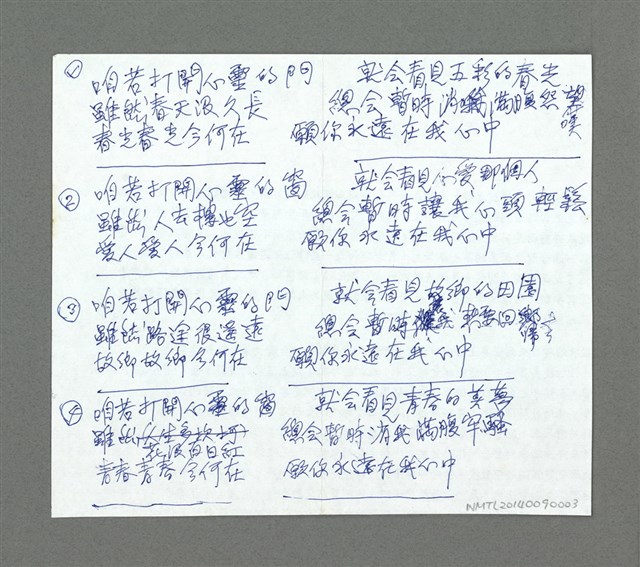 ① 咱若打開心靈的門 就会看見五彩的春光
雖然春天沒久長 總会暫時消 滿腹怨嘆
春光春光今何在 願你永遠在我心中
② 咱若打開心靈的窗 就会看見心愛那個人
雖然人去樓也空 總会暫時讓我心頭輕鬆
愛人愛人今何在 願你永遠在我心中
③ 咱若打開心靈的門 就会看見故鄉的田園
雖然路途很遙遠 總会暫時 我
故鄉故鄉今何在 願你永遠在我心中
④ 咱若打開心靈的窗 就会看見青春的美夢
雖然 總会暫時消 滿腹牢騷
花沒百日紅
青春青春今何在 願你永遠在我心中
NMTL20140090003